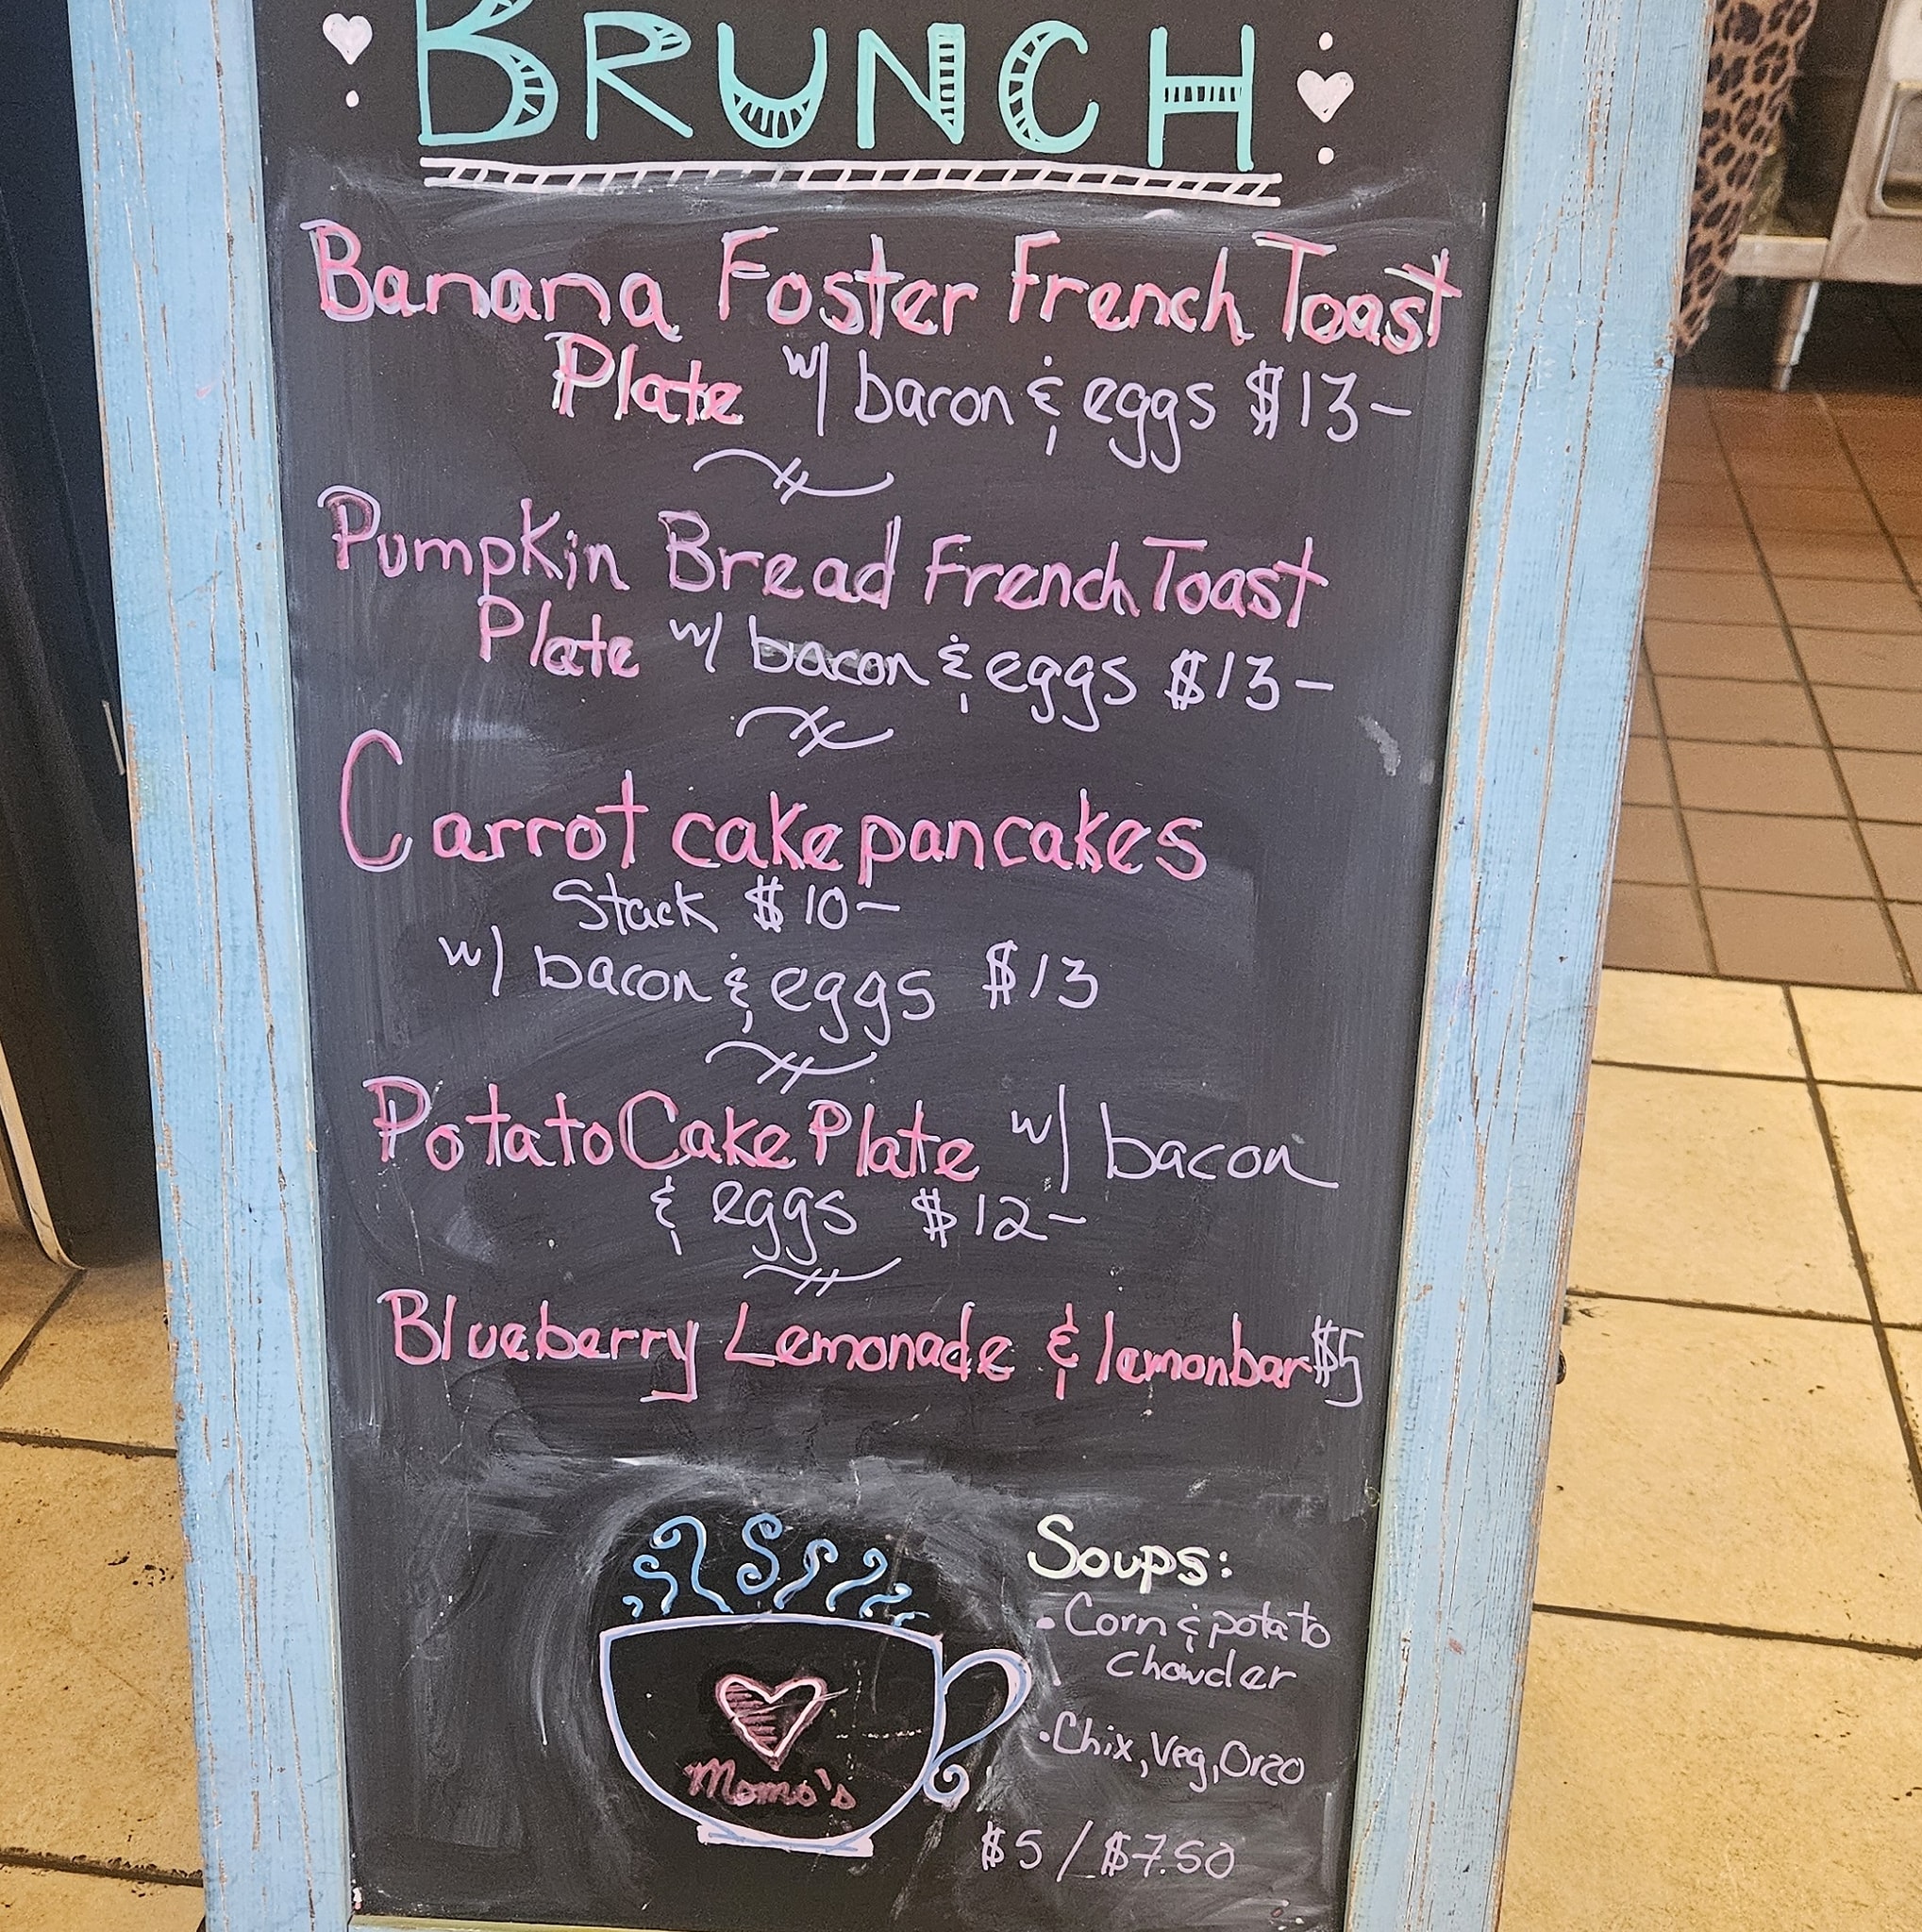 BRUNCH
Banana Foster French Toast
Plate w/ bacon & eggs $13-
Pumpkin Bread French Toast
Plate w/ bacon & eggs $13-
Carrot cake pancakes
Stack $10-
w/ bacon & eggs $13
Potato Cake Plate w/ bacon
& eggs $12-
Blueberry Lemonade & lemonbar $5
Soups:
• Corn & potato
chowder
• Chix, Veg, Orzo
Momo's
$5 / $7.50